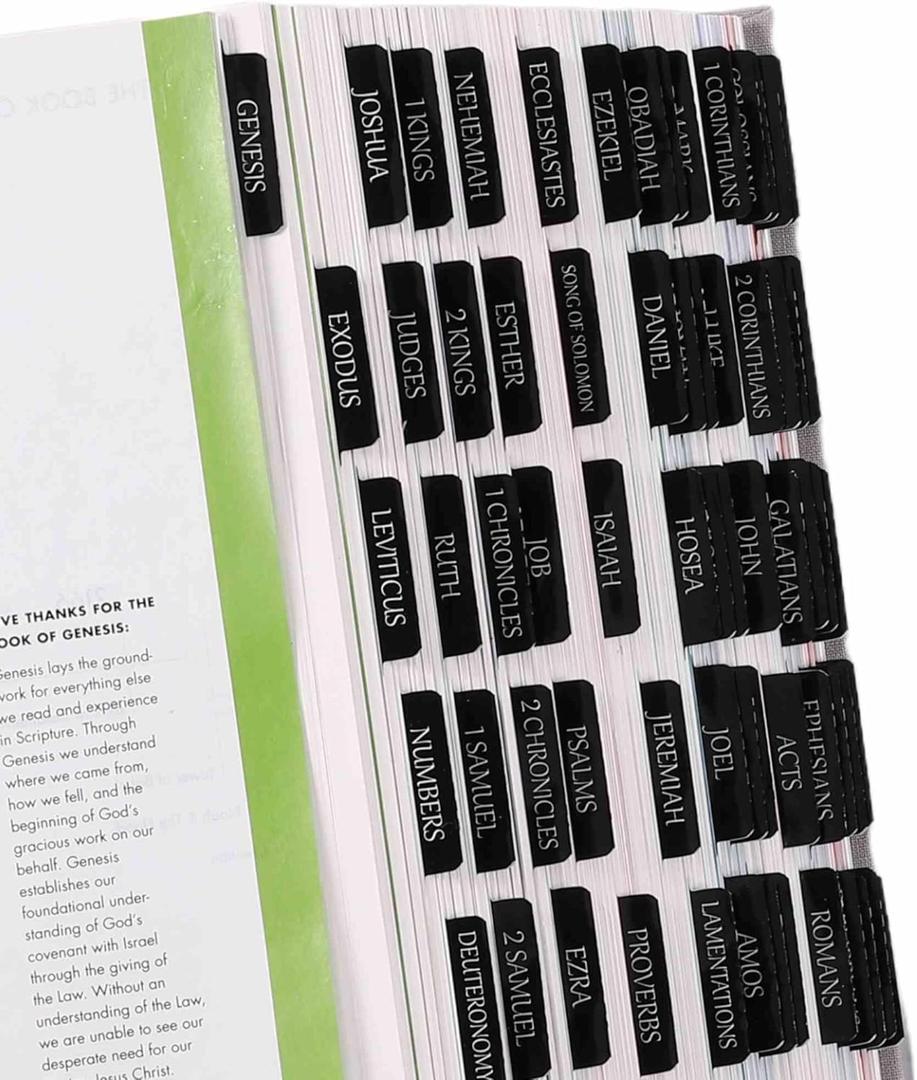 GENESIS
JOSHUA
1 KINGS
NEHEMIAH
ECCLESIASTES
EZEKIEL
OBADIAH
MARK
1 CORINTHIANS
EXODUS
JUDGES
2 KINGS
ESTHER
SONG OF SOLOMON
DANIEL
LUKE
2 CORINTHIANS
LEVITICUS
RUTH
1 CHRONICLES
JOB
ISAIAH
HOSEA
JOHN
GALATIANS
NUMBERS
1 SAMUEL
2 CHRONICLES
PSALMS
JEREMIAH
JOEL
ACTS
EPHESIANS
DEUTERONOMY
2 SAMUEL
EZRA
PROVERBS
LAMENTATIONS
AMOS
ROMANS
VE THANKS FOR THE
OOK OF GENESIS:
Genesis lays the ground-
work for everything else
we read and experience
in Scripture. Through
Genesis we understand
where we came from,
how we fell, and the
beginning of God's
gracious work on our
behalf. Genesis
establishes our
foundational under-
standing of God's
covenant with Israel
through the giving of
the Law. Without an
understanding of the Law,
we are unable to see our
desperate need for our
Jesus Christ.